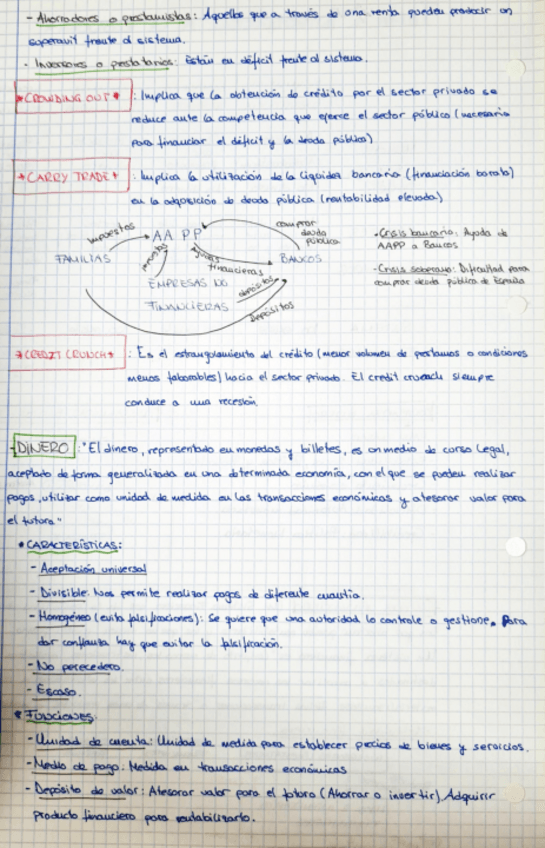 - Ahorradores o prestamistas: Aquellos que a través de una renta pueden producir un
superavit frente al sistema.
- Inversores o prestatarios: Están en déficit frente al sistema.
* CROWDING OUT * : Implica que la obtención de crédito por el sector privado se
reduce ante la competencia que ejerce el sector público (necesario
para financiar el déficit y la deuda pública)
* CARRY TRADE * : Implica la utilización de la liquidez bancaria (financiación barata)
en la adquisición de deuda pública (rentabilidad elevada)
FAMILIAS
impuestos
AA PP
comprar
deuda
pública
BANCOS
impuestos
Ayudas
financieras
EMPRESAS NO
FINANCIERAS
depósitos
Depósitos
- Crisis bancaria: Ayuda de
AAPP a Bancos
- Crisis soberana: Dificultad para
comprar deuda pública de España
* CREDIT CRUNCH * : Es el estrangulamiento del crédito (menor volumen de prestamos o condiciones
menos faborables) hacia el sector privado. El credit crunch siempre
conduce a una recesión
- DINERO : "El dinero, representado en monedas y billetes, es un medio de curso legal,
aceptado de forma generalizada en una determinada economía, con el que se pueden realizar
pagos, utilizar como unidad de medida en las transacciones económicas y atesorar valor para
el futuro."
• CARACTERÍSTICAS:
- Aceptación universal
- Divisible: Nos permite realizar pagos de diferente cuantía.
- Homogéneo (evita falsificaciones): Se quiere que una autoridad lo controle o gestione. Para
dar confianza hay que evitar la falsificación.
- No perecedero.
- Escaso.
• FUNCIONES:
- Unidad de cuenta: Unidad de medida para establecer precios de bienes y servicios.
- Medio de pago: Medida en transacciones económicas
- Depósito de valor: Atesorar valor para el futuro (Ahorrar o invertir). Adquirir
producto financiero para rentabilizarlo.